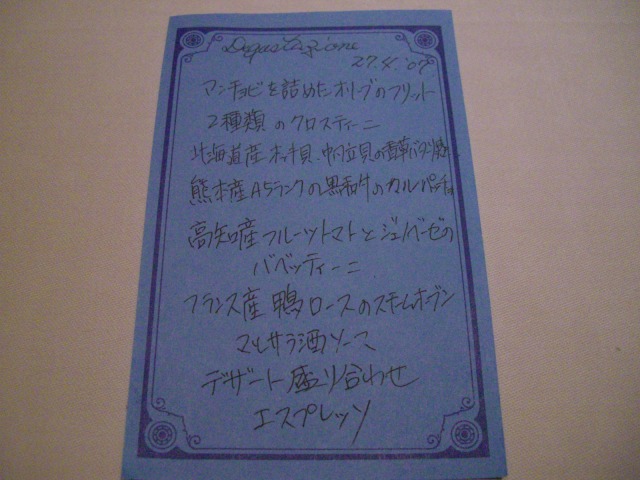 Degustazione
27.4.'07
アンチョビを詰めたオリーブのフリット
2種類のクロスティーニ
北海道産ホッキ貝、帆立貝の香草バター焼
熊本産A5ランクの黒和牛のカルパッチョ
高知産フルーツトマトとジェノベーゼの
バベッティーニ
フランス産 鴨ロースのスチームオーブン
マルサラ酒ソース
デザート盛り合わせ
エスプレッソ